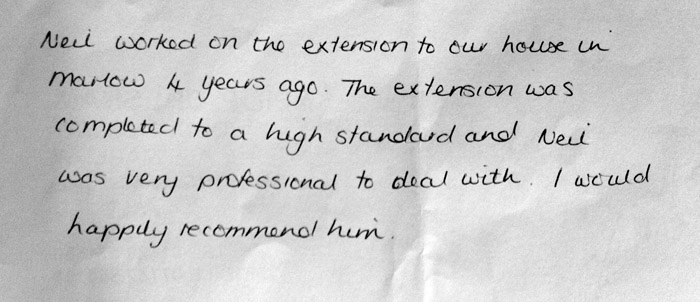 Neil worked on the extension to our house in
Marlow 4 years ago. The extension was
completed to a high standard and Neil
was very professional to deal with. I would
happily recommend him.